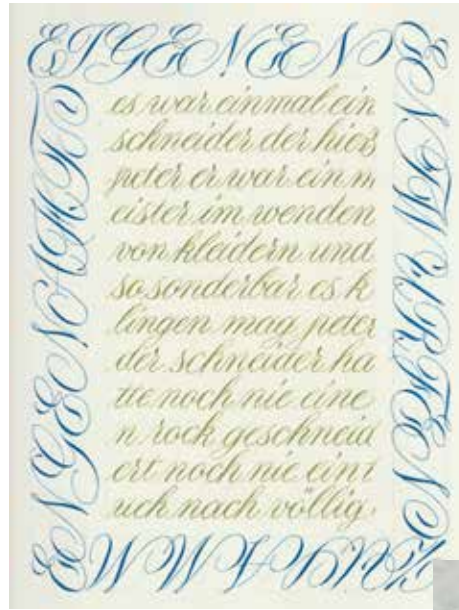 EIGENEN
ENTWÜRFEN
es war einmal ein
schneider der hieß
peter er war ein m
eister im wenden
von kleidern und
so sonderbar es k
lingen mag peter
der schneider ha
tte noch nie eine
n rock geschneid
ert noch nie ein t
uch nach völlig